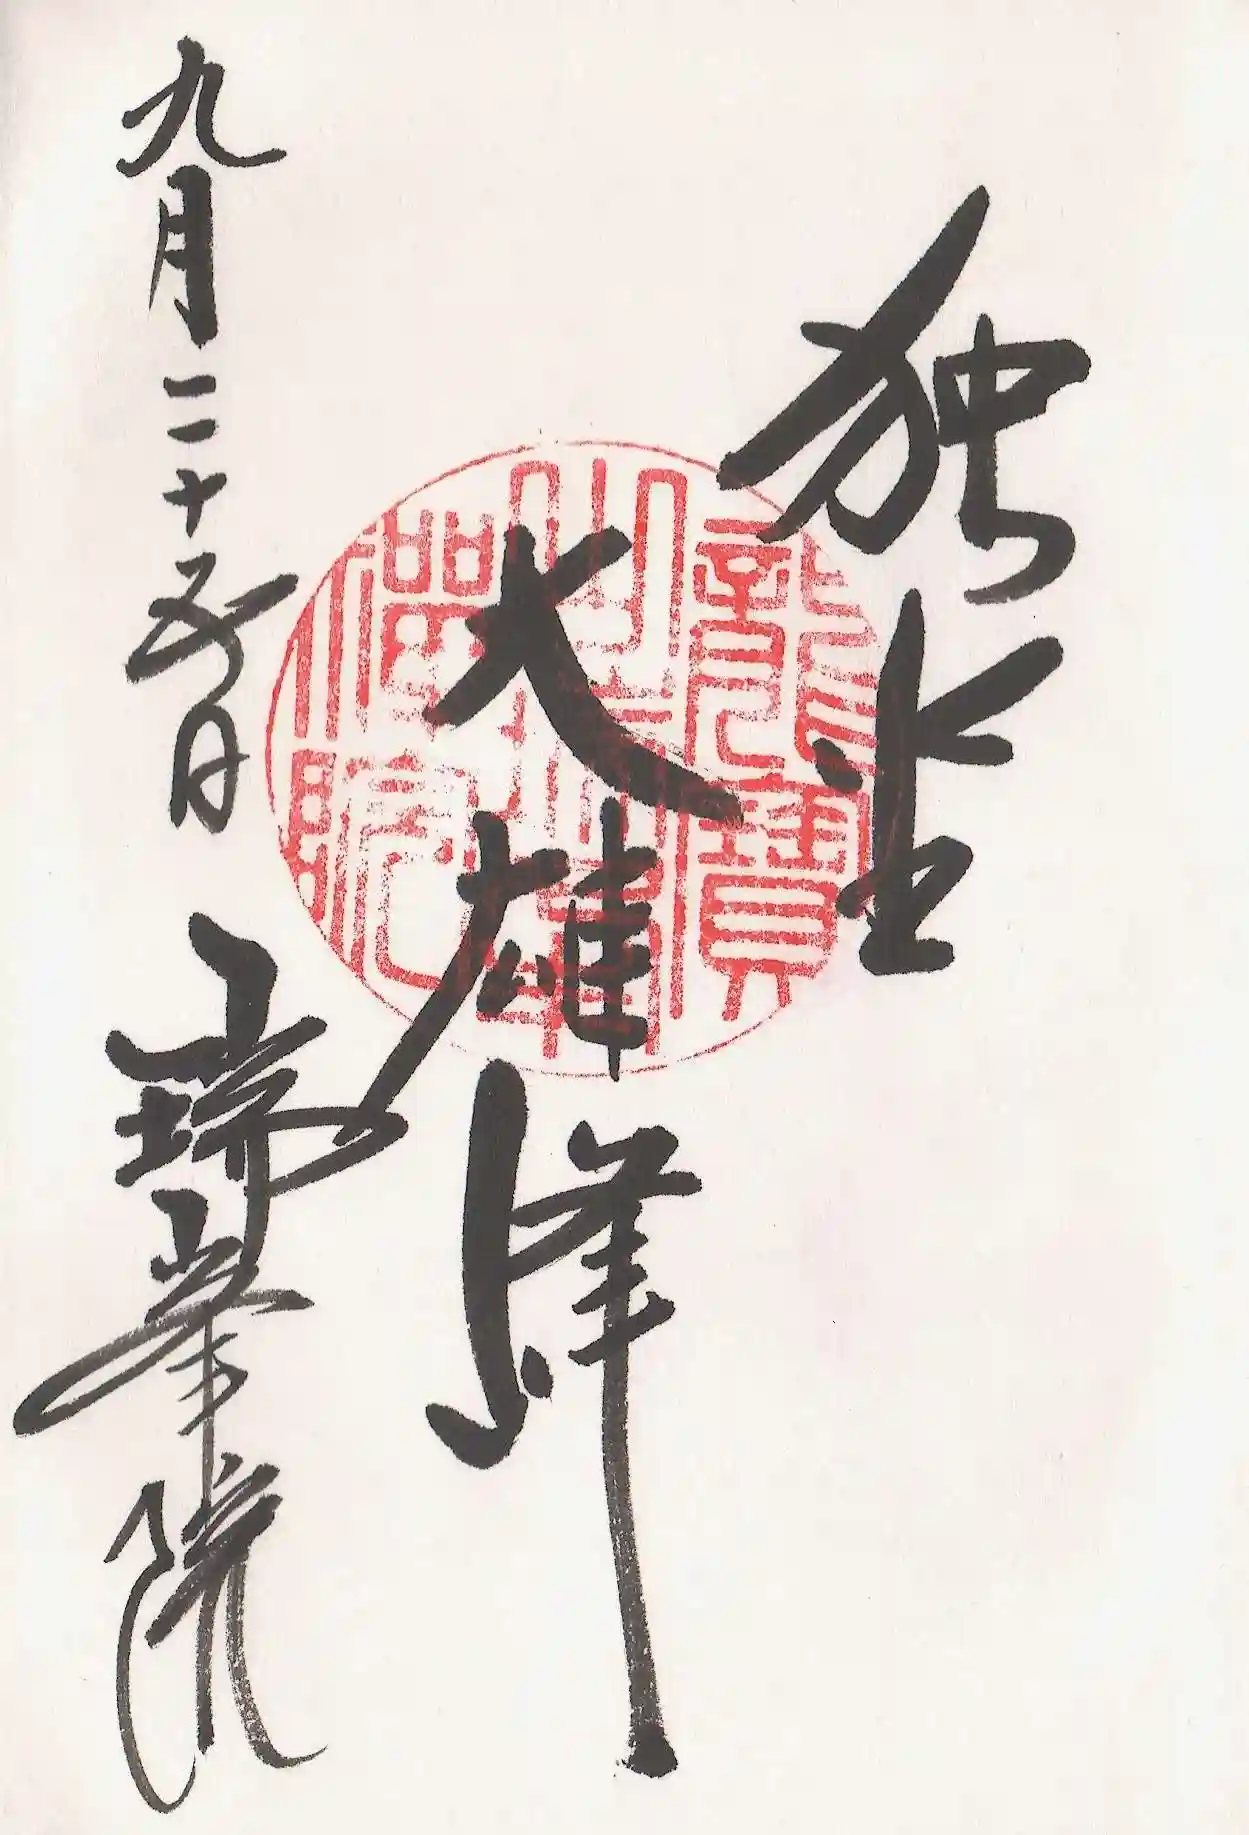 独坐
大雄峰
九月二十五日
瑞峯院